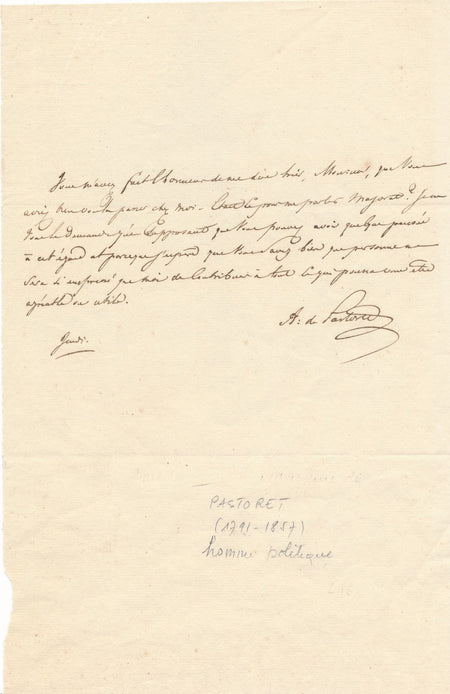 Vous m'avez fait l'honneur de me dire hier, Monsieur, que Vous
aviez bien voulu passer chez moi. Etait ce pour me parler Majorat? Je ne
Vous le demande qu'en supposant que Vous pouvez avoir quelque pensée
à cet égard et parceque j'espère que Vous Savez bien que personne ne
Sera si empressé que moi de Contribuer à tout ce qui pourra vous être
agréable ou utile.
A: de Pastoret
Jeudi.
PASTORET
(1791-1857)
homme politique